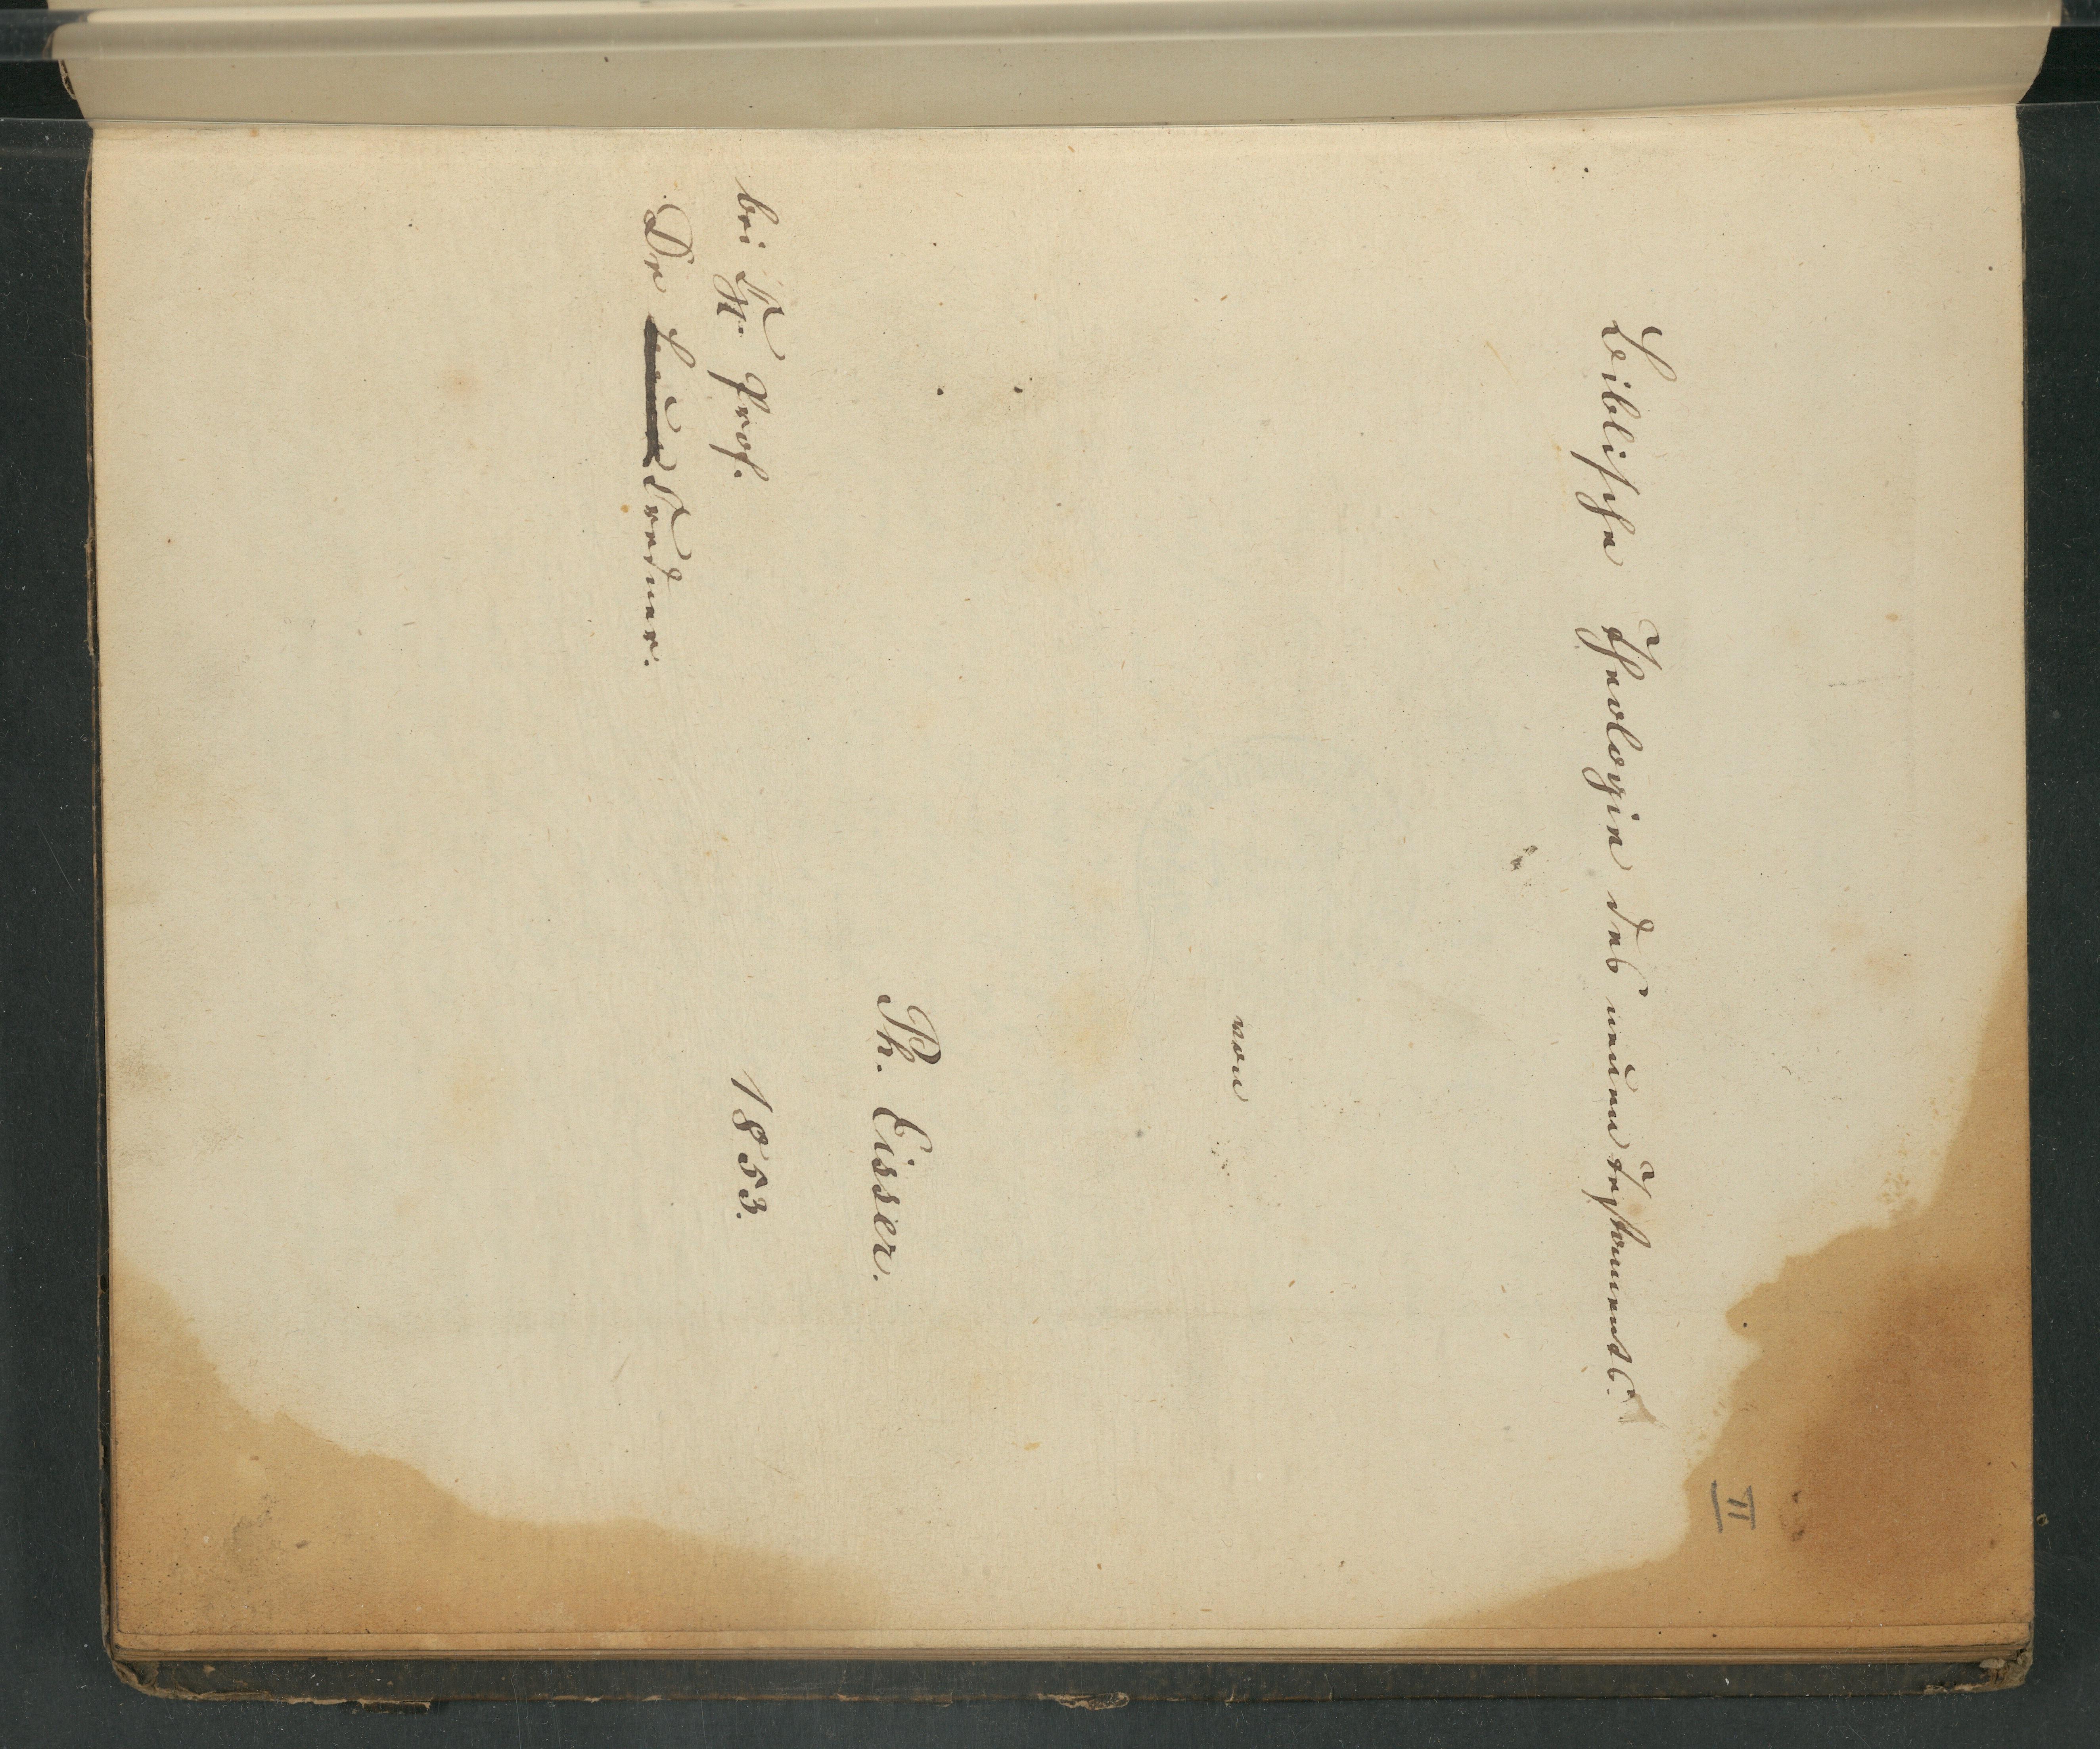 II
Biblische Theologie des neuen Testaments.
von
Ph. Eisser.
bei H. Prof. 1853.
Dr Credner.